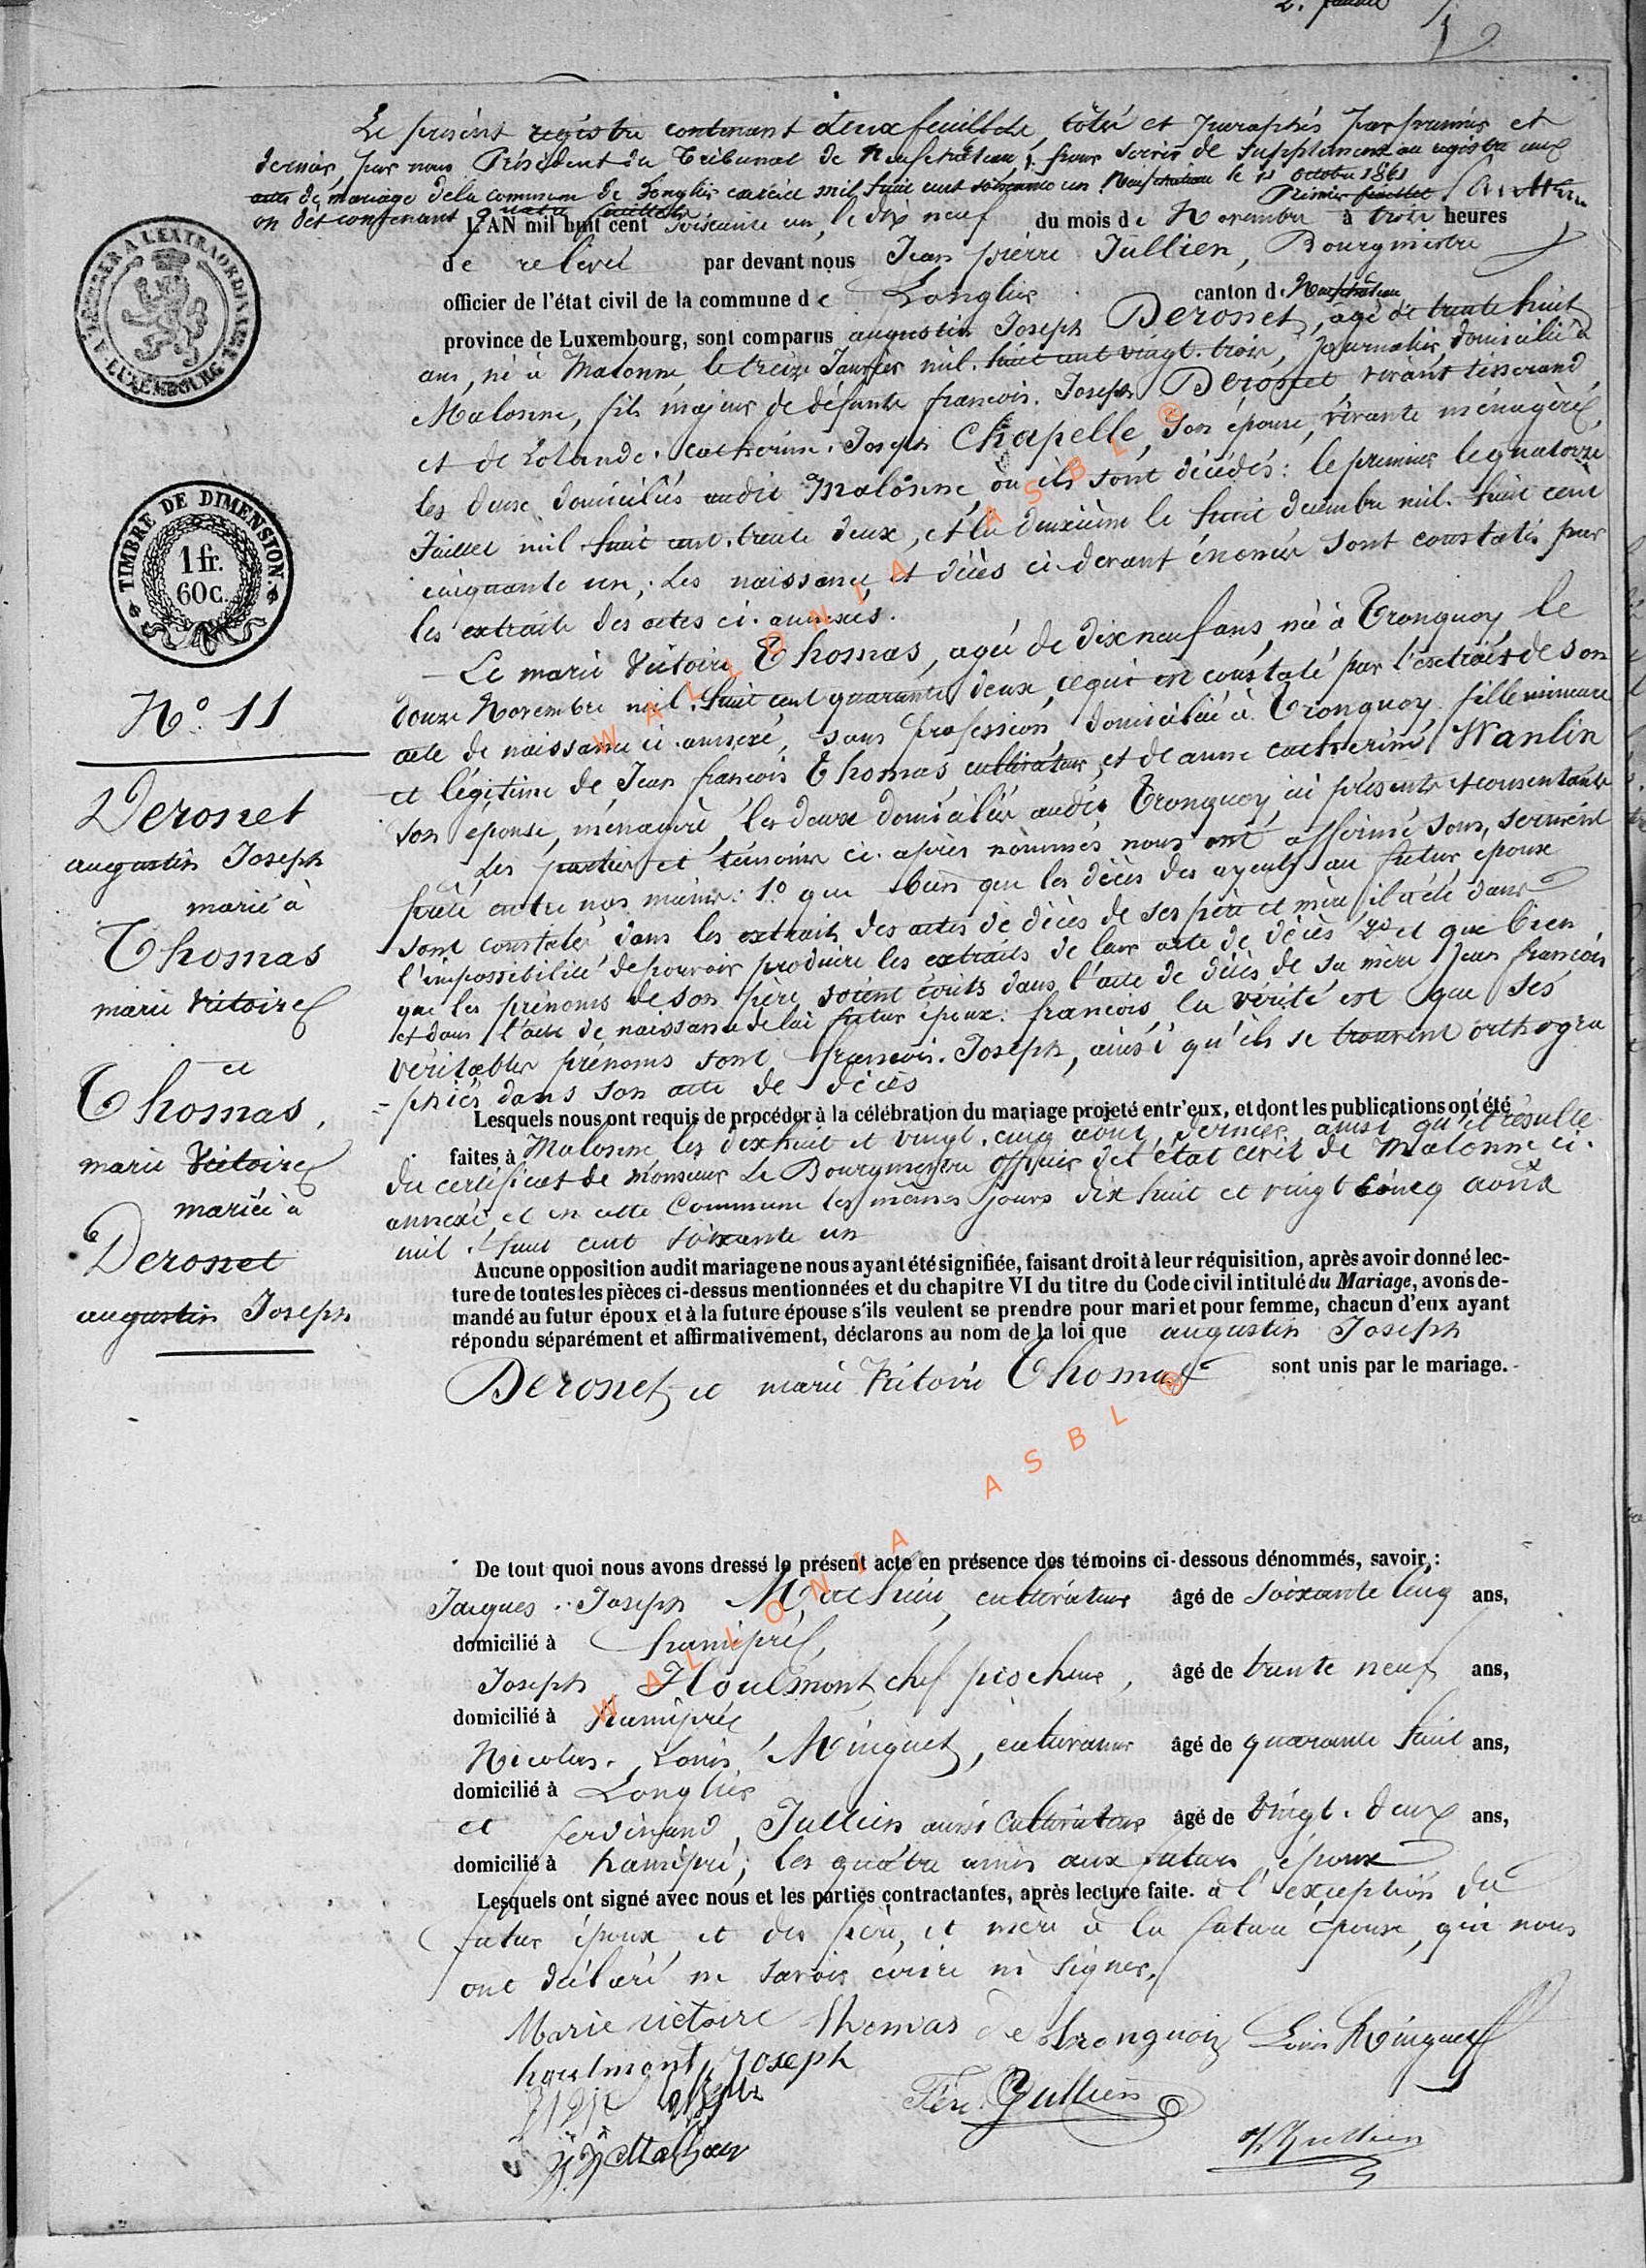 2. feuillet
Le présent registre contenant deux feuillets, côtés et paraphés par premier et
dernier, par nous Président du Tribunal de Neufchateau, pour servir de supplément au registre aux
actes de mariage de la commune de Longlier exercice mil huit cent soixante un. Neufchateau le 11 octobre 1861
on dit contenant quatre feuillets
Premier feuillet
L'AN mil huit cent soixante un, le dix neuf du mois de Novembre à trois heures
de relevée par devant nous Jean pierre Jullien, Bourgmestre
officier de l'état civil de la commune de Longlier canton de Neufchateau
province de Luxembourg, sont comparus augustin Joseph Deronet, agé de trente huit
ans, né à Malonne, le treize Janvier mil. huit cent vingt. trois, Journalier, domicilié à
Malonne, fils majeur de défunts francois. Joseph Deronet vivant tisserand,
et de Rolande. catherine. Joseph Chapelle, son épouse, vivante ménagère,
les deux domiciliés audit Malonne, où ils sont décédés: le premier le quatorze
Juillet mil huit cent. trente deux, et la deuxième le huit décembre mil. huit cent
cinquante un, Les naissance et décès ci-devant énoncés sont constatés par
les extraits des actes ci. annexés.
— Et marie Victoire Thomas, agée de dix neuf ans, née à Tronquoy le
douze Novembre mil. huit cent quarante deux, ce qui est constaté par l'extrait de son
acte de naissance ci. annexé, sans profession, domiciliée à Tronquoy. fille mineure
et légitime de Jean francois Thomas, cultivateur, et de anne catherine Wanlin
son épouse, ménagère, les deux domiciliés audit Tronquoy, ici présents et consentants
Les parties et témoins ci. après nommés nous ont affirmé sous, serment
prêté entre nos mains: 1° que bien que les décès des ayeuls au futur époux
sont constatés dans les extraits des actes de décès de ses père et mère, il a été dans
l'impossibilité de pouvoir produire les extraits de leur acte de décès 2° et que bien
que les prénoms de son père soient écrits dans l'acte de décès de sa mère Jean francois
et dans l'acte de naissance de lui futur époux: francois, la vérité est que ses
véritables prénoms sont francois. Joseph, ainsi qu'ils se trouvent orthogra
- phiés dans son acte de décès
Lesquels nous ont requis de procéder à la célébration du mariage projeté entr'eux, et dont les publications ont été
faites à Malonne, les dix huit et vingt. cinq août, dernier, ainsi qu'il résulte
du certificat de monsieur Le Bourgmestre officier de l'état civil de Malonne ci.
annexé, et en cette Commune les mêmes jours dix huit et vingt cinq août
mil. huit cent soixante un
Aucune opposition audit mariage ne nous ayant été signifiée, faisant droit à leur réquisition, après avoir donné lec-
ture de toutes les pièces ci-dessus mentionnées et du chapitre VI du titre du Code civil intitulé du Mariage, avons de-
mandé au futur époux et à la future épouse s'ils veulent se prendre pour mari et pour femme, chacun d'eux ayant
répondu séparément et affirmativement, déclarons au nom de la loi que augustin Joseph
Deronet et marie Victoire Thomas sont unis par le mariage.
De tout quoi nous avons dressé le présent acte en présence des témoins ci-dessous dénommés, savoir :
Jacques. Joseph Mathieu, cultivateur âgé de soixante cinq ans,
domicilié à hamipré,
Joseph Houlmont, chef piocheur, âgé de trente neuf ans,
domicilié à hamipré
Nicolas. Louis Minguet, cultivateur âgé de quarante huit ans,
domicilié à Longlier
et ferdinand Jullien aussi Cultivateur âgé de vingt. deux ans,
domicilié à hamipré, les quatre amis aux futurs époux
Lesquels ont signé avec nous et les parties contractantes, après lecture faite. à l'exception du
futur époux et des père, et mère à la future épouse, qui nous
ont déclaré ne savoir écrire ni signer.
Marie victoire thomas de tronquoy Louis Minguet
houlmont Joseph
Fer. Jullien
JJ Mathieu
JP Jullien
TIMBRER A L'EXTRAORDINAIRE
A LUXEMBOURG
TIMBRE DE DIMENSION
1 fr.
60 c.
N.° 11
Deronet
augustin Joseph
marié à
Thomas
marie Victoire
et
Thomas,
marie Victoire
mariée à
Deronet
augustin Joseph
WALLONIA ASBL ®
WALLONIA ASBL ®